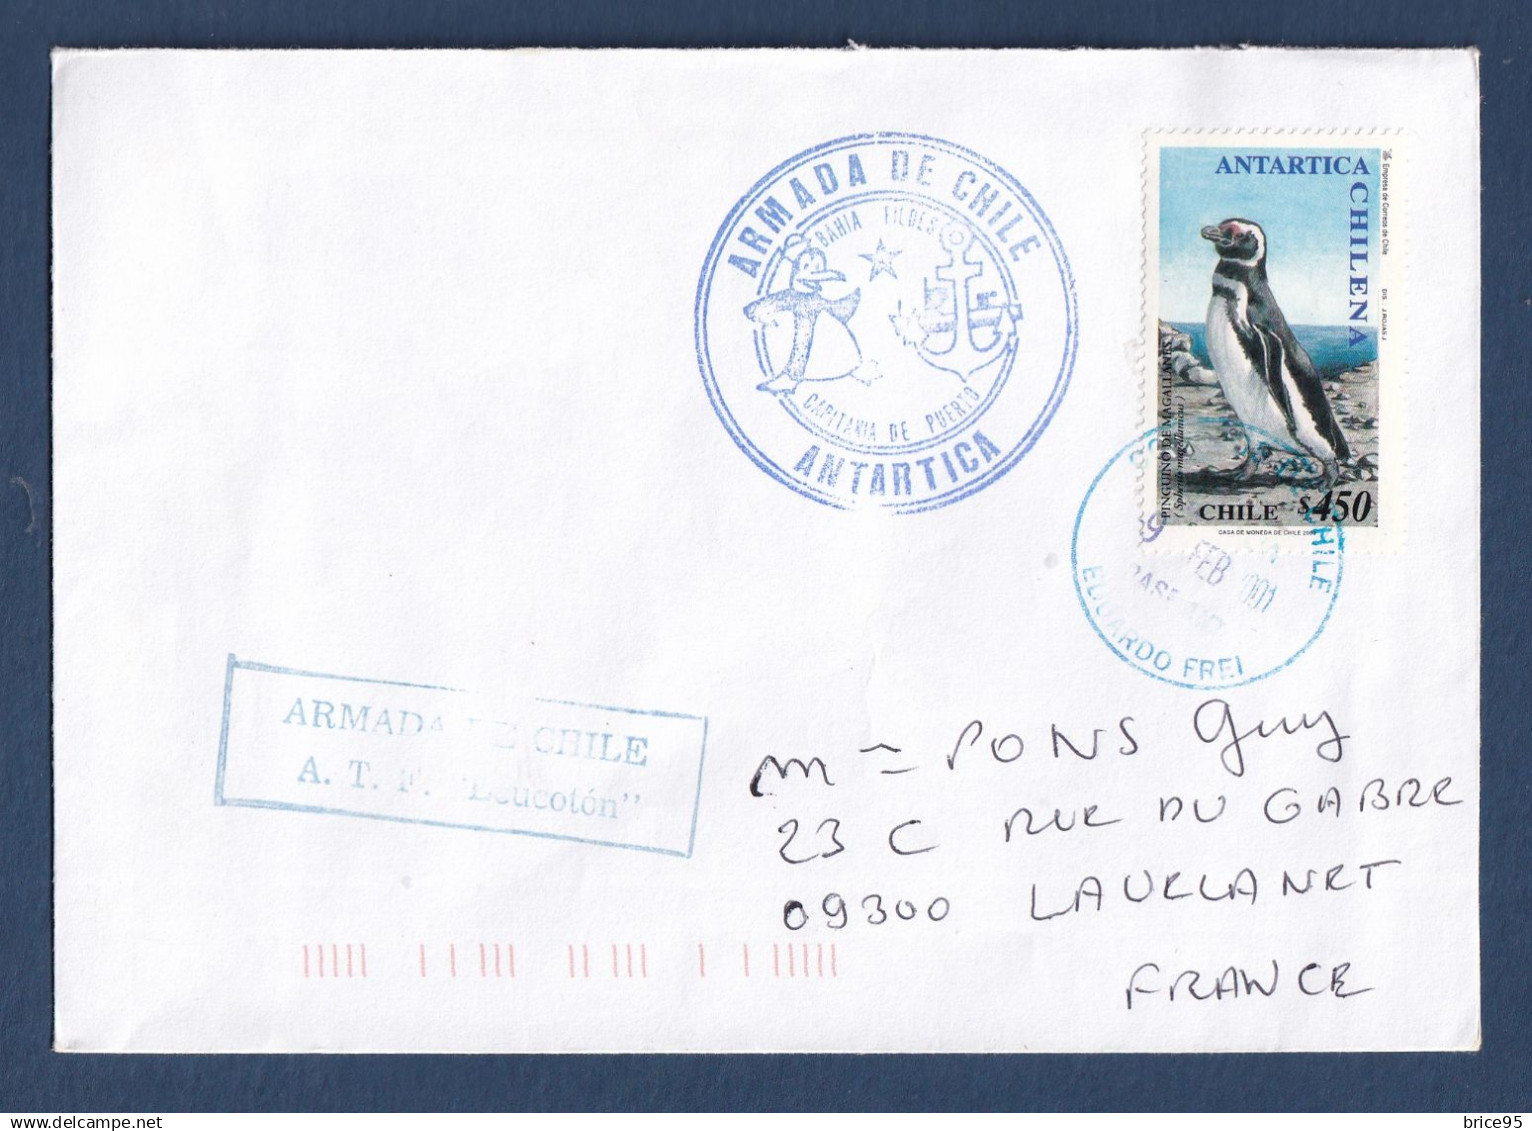 ARMADA DE CHILE
BAHIA FILDES
CAPITANIA DE PUERTO
ANTARTICA
ANTARTICA
CHILENA
Empresa de Correos de Chile
DIS. J. ROJAS J.
PINGUINO DE MAGALLANES
(Spheniscus magellanicus)
CHILE $450
CASA DE MONEDA DE CHILE
CHILE
9 FEB 2001
BASE
EDUARDO FREI
ARMADA DE CHILE
A. T. F. "Leucotón"
M = PONS Guy
23 C RUE DU GABRE
09300 LAVELANET
FRANCE
brice95